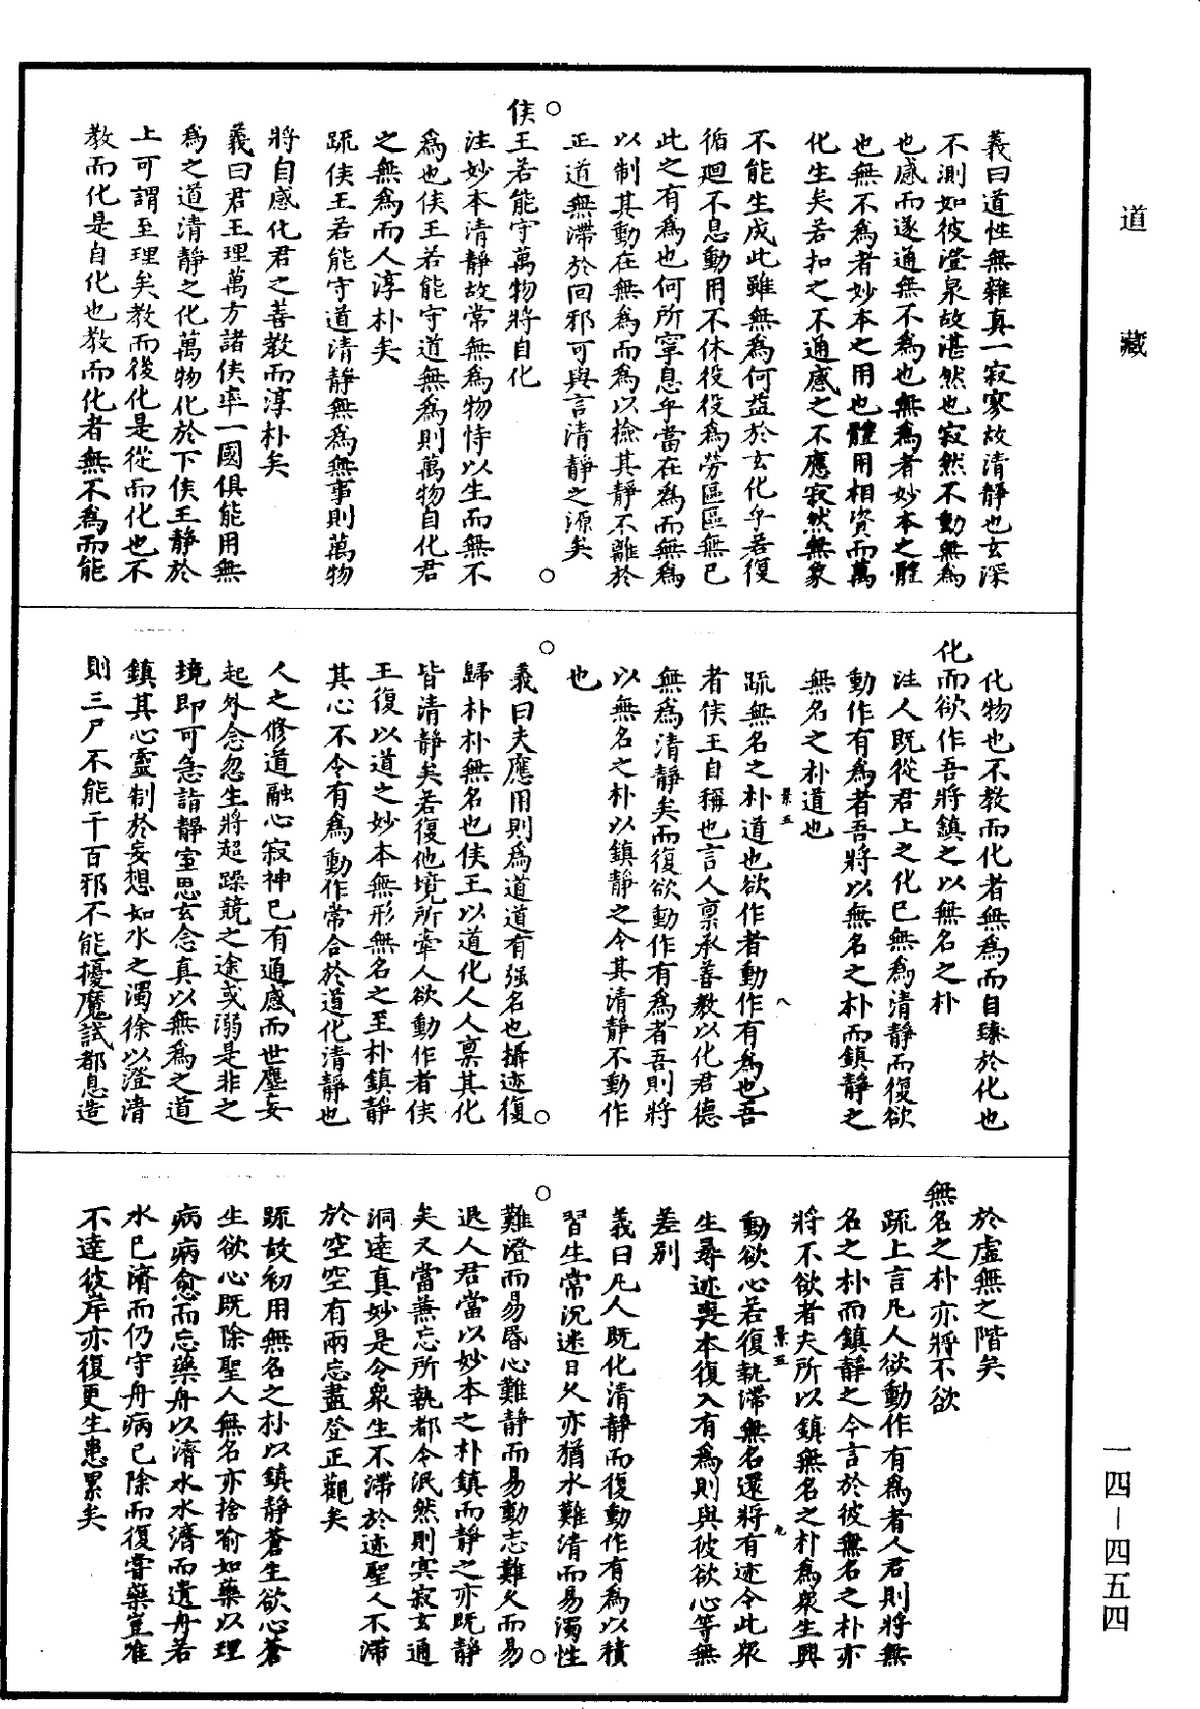 道藏
義曰道性無雜真一寂寥故清靜也玄深
不測如彼澄泉故湛然也寂然不動無為
也感而遂通無不為也無為者妙本之體
也無不為者妙本之用也體用相資而萬
化生矣若扣之不通感之不應寂然無象
不能生成此雖無為何益於玄化乎若復
循迴不息動用不休役役為勞區區無已
此之有為也何所寧息乎當在為而無為
以制其動在無為而為以檢其靜不離於
正道無滯於回邪可與言清靜之源矣
侯王若能守萬物將自化
注妙本清靜故常無為物恃以生而無不
為也侯王若能守道無為則萬物自化君
之無為而人淳朴矣
疏侯王若能守道清靜無為無事則萬物
將自感化君之善教而淳朴矣
義曰君王理萬方諸侯率一國俱能用無
為之道清靜之化萬物化於下侯王靜於
上可謂至理矣教而後化是從而化也不
教而化是自化也教而化者無不為而能
化物也不教而化者無為而自臻於化也
化而欲作吾將鎮之以無名之朴
注人既從君上之化已無為清靜而復欲
動作有為者吾將以無名之朴而鎮靜之
無名之朴道也
景五 八
疏無名之朴道也欲作者動作有為也吾
者侯王自稱也言人稟承善教以化君德
無為清靜矣而復欲動作有為者吾則將
以無名之朴以鎮靜之令其清靜不動作
也
義曰夫應用則為道道有强名也攝迹復
歸朴朴無名也侯王以道化人人稟其化
皆清靜矣若復他境所牽人欲動作者侯
王復以道之妙本無形無名之至朴鎮靜
其心不令有為動作常合於道化清靜也
人之修道融心寂神已有通感而世塵妄
起外念忽生將超躁競之途或溺是非之
境即可急詣靜室思玄念真以無為之道
鎮其心靈制於妄想如水之濁徐以澄清
則三尸不能干百邪不能擾魔試都息造
於虛無之階矣
無名之朴亦將不欲
疏上言凡人欲動作有為者人君則將無
名之朴而鎮靜之今言於彼無名之朴亦
將不欲者夫所以鎮無名之朴為眾生興
景五 九
動欲心若復執滯無名還將有迹令此眾
生尋迹喪本復入有為則與彼欲心等無
差別
義曰凡人既化清靜而復動作有為以積
習生常沉迷日久亦猶水難清而易濁性
難澄而易昏心難靜而易動志難久而易
退人君當以妙本之朴鎮而靜之亦既靜
矣又當兼忘所執都令泯然則冥寂玄通
洞達真妙是令眾生不滯於迹聖人不滯
於空空有兩忘盡登正觀矣
疏故初用無名之朴以鎮靜蒼生欲心蒼
生欲心既除聖人無名亦捨喻如藥以理
病病愈而忘藥舟以濟水水濟而遺舟若
水已濟而仍守舟病已除而復嘗藥豈惟
不達彼岸亦復更生患累矣
一四-四五四